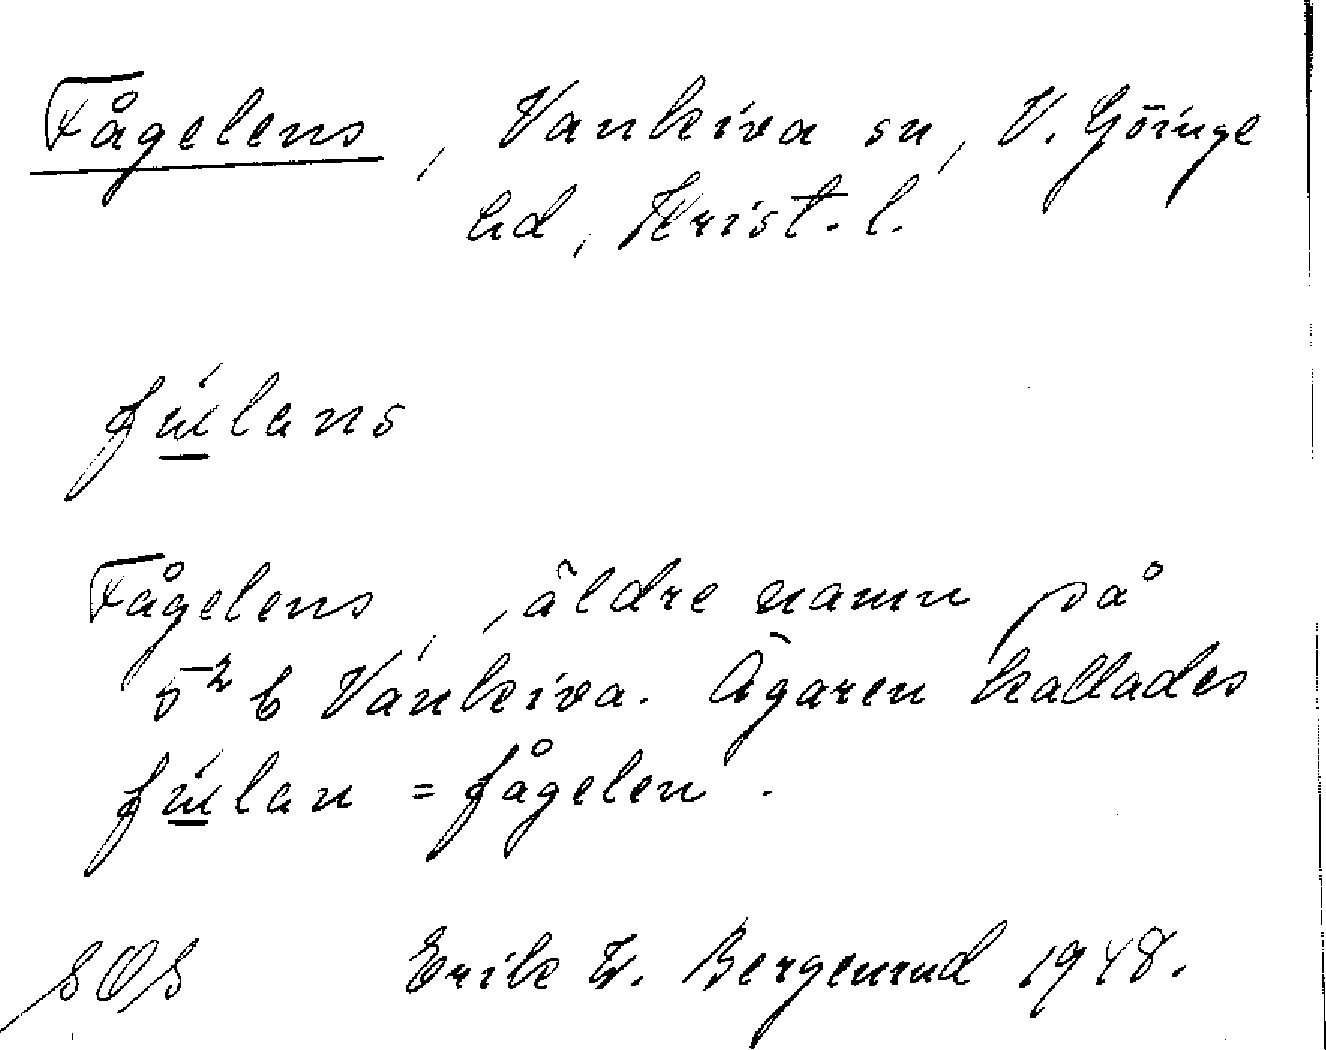 Fågelens, Vankiva sn, V. Göinge
hd, Krist. l.
fúlans
Fågelens, äldre namn på
5² b Vankiva. Ägaren kallades
fúlan = fågelen.
SOS Erik W. Bergenrud 1948.